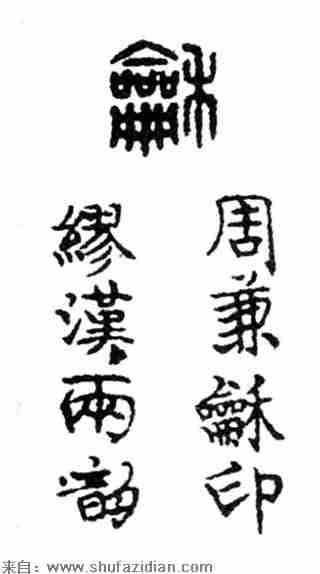 龢
周兼龢印
繆漢兩韵
来自：www.shufazidian.com